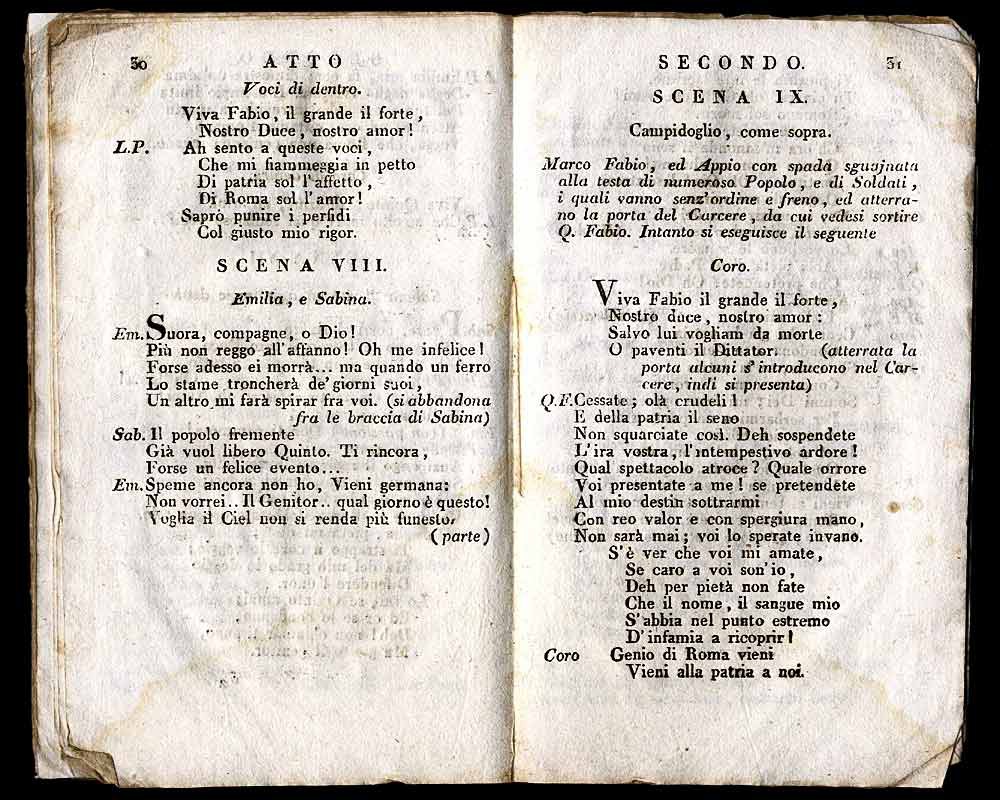 30 ATTO
Voci di dentro.
Viva Fabio, il grande il forte,
Nostro Duce, nostro amor!
L.P. Ah sento a queste voci,
Che mi fiammeggia in petto
Di patria sol l'affetto,
Di Roma sol l'amor!
Saprò punire i perfidi
Col giusto mio rigor.
SCENA VIII.
Emilia, e Sabina.
Em. Suora, compagne, o Dio!
Più non reggo all'affanno! Oh me infelice!
Forse adesso ei morrà... ma quando un ferro
Lo stame troncherà de' giorni suoi,
Un altro mi farà spirar fra voi. (si abbandona
fra le braccia di Sabina)
Sab. Il popolo fremente
Già vuol libero Quinto. Ti rincora,
Forse un felice evento...
Em. Speme ancora non ho, Vieni germana:
Non vorrei.. Il Genitor.. qual giorno è questo!
Voglia il Ciel non si renda più funesto.
(parte)
SECONDO. 31
SCENA IX.
Campidoglio, come sopra.
Marco Fabio, ed Appio con spada sguajnata
alla testa di numeroso Popolo, e di Soldati,
i quali vanno senz'ordine e freno, ed atterra-
no la porta del Carcere, da cui vedesi sortire
Q. Fabio. Intanto si eseguisce il seguente
Coro.
Viva Fabio il grande il forte,
Nostro duce, nostro amor:
Salvo lui vogliam da morte
O paventi il Dittator. (atterrata la
porta alcuni s'introducono nel Car-
cere, indi si presenta)
Q.F. Cessate; olà crudeli!
E della patria il seno
Non squarciate così. Deh sospendete
L'ira vostra, l'intempestivo ardore!
Qual spettacolo atroce? Quale orrore
Voi presentate a me! se pretendete
Al mio destin sottrarmi
Con reo valor e con spergiura mano,
Non sarà mai; voi lo sperate invano.
S'è ver che voi mi amate,
Se caro a voi son'io,
Deh per pietà non fate
Che il nome, il sangue mio
S'abbia nel punto estremo
D'infamia a ricoprir!
Coro Genio di Roma vieni
Vieni alla patria a noi.